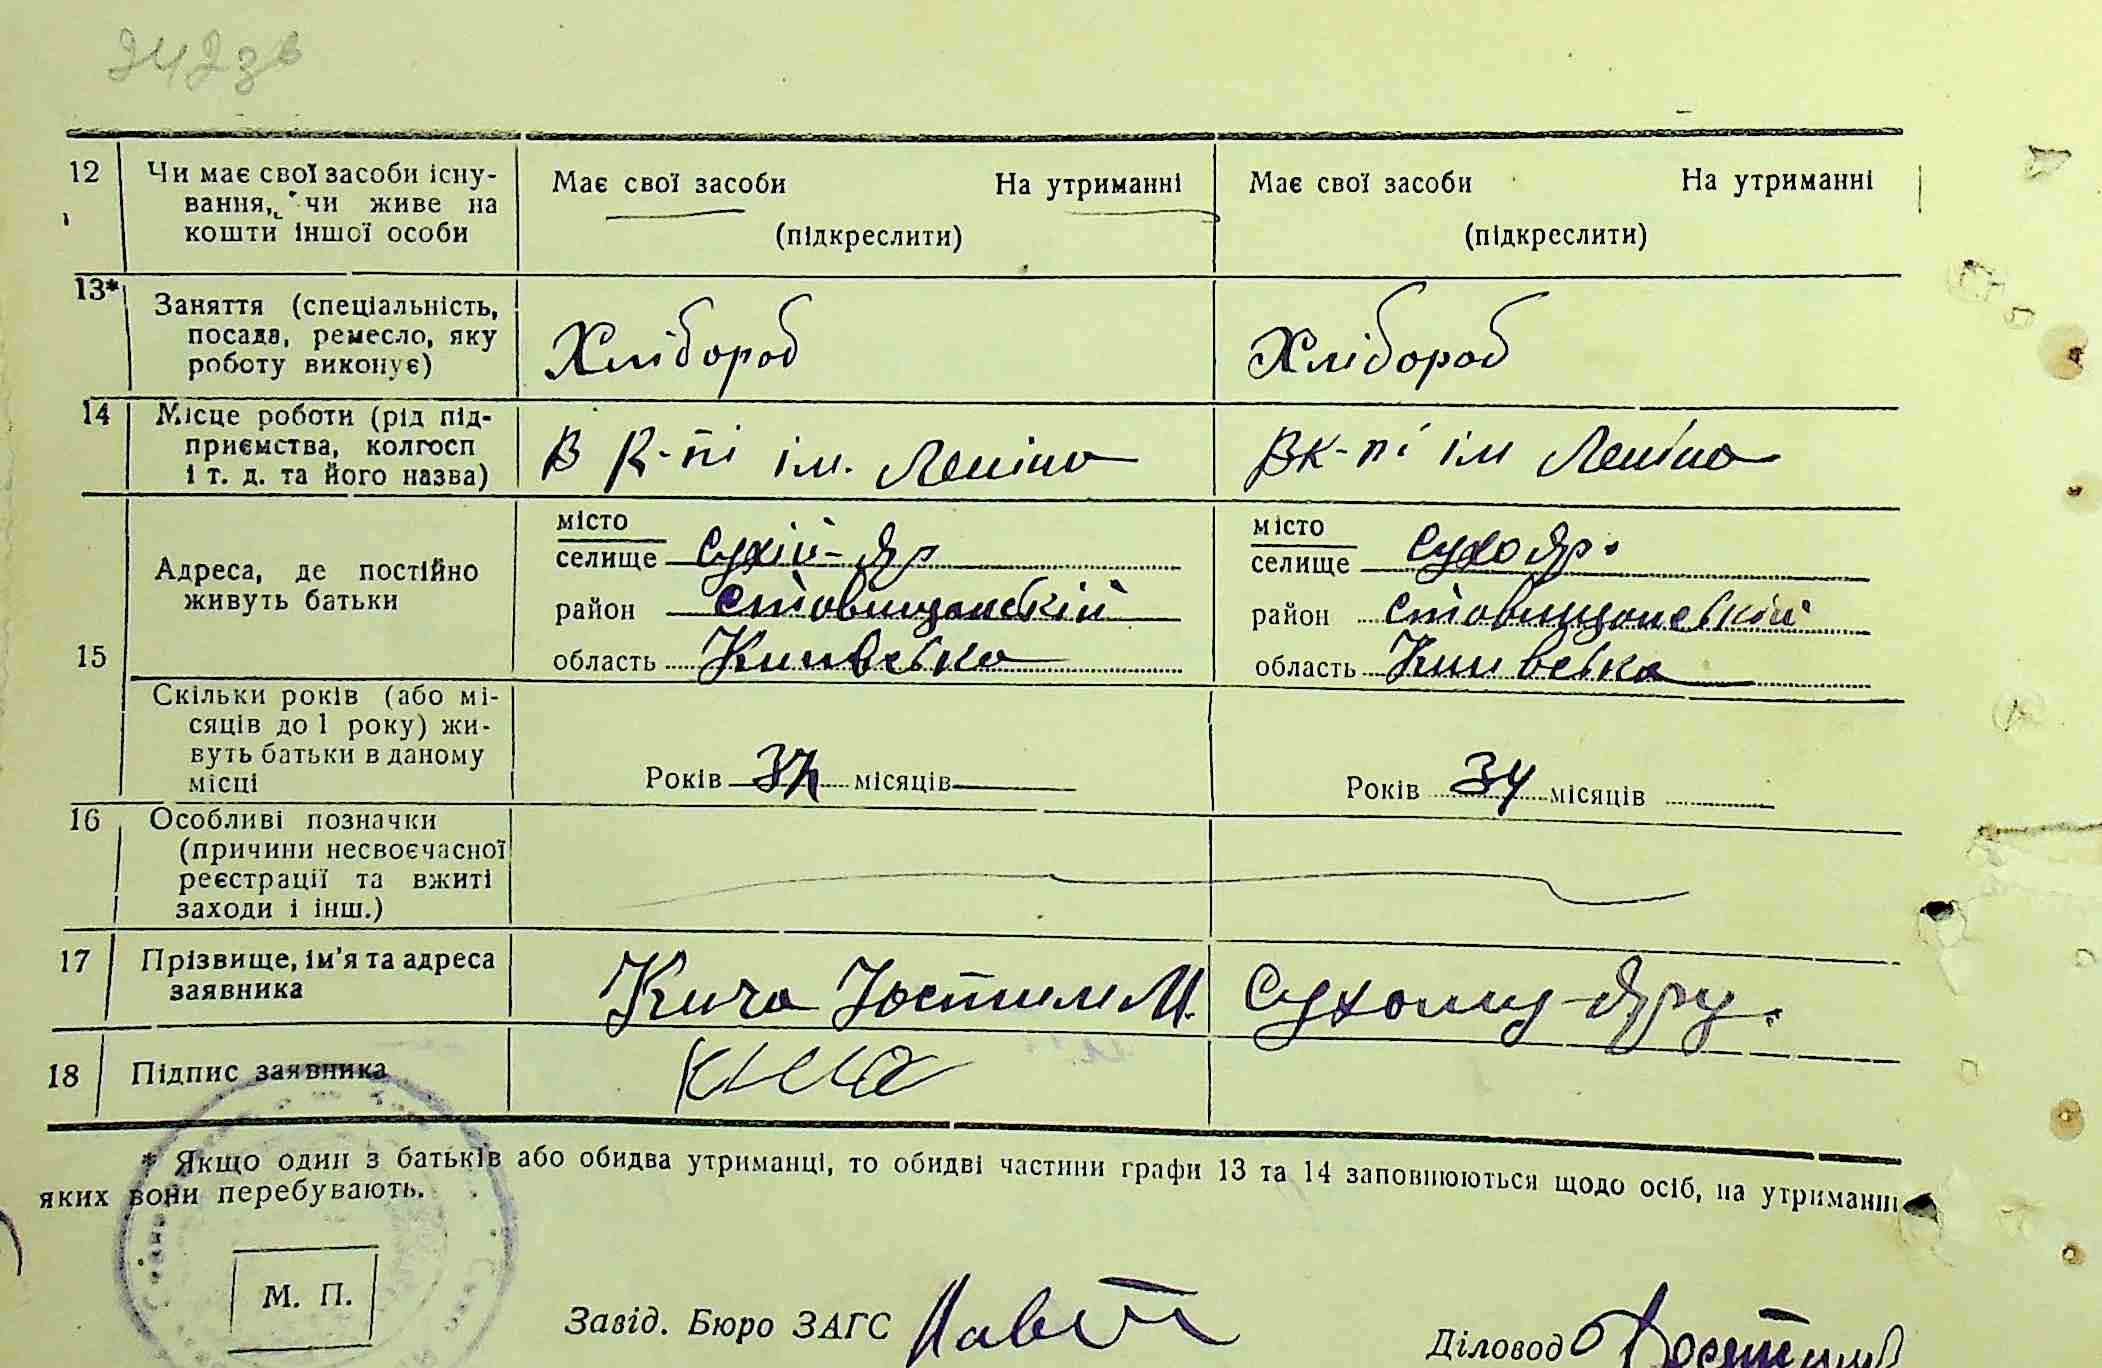 242зв
12 Чи має свої засоби існу-
вання, чи живе на
кошти іншої особи
Має свої засоби На утриманні
(підкреслити)
Має свої засоби На утриманні
(підкреслити)
13* Заняття (спеціальність,
посада, ремесло, яку
роботу виконує)
Хлібороб
Хлібороб
14 Місце роботи (рід під-
приємства, колгосп
і т. д. та його назва)
В к-пі ім. Леніна
В к-пі ім Леніна
15
Адреса, де постійно
живуть батьки
місто
селище Сухий-Яр
район Ставищанскій
область Київська
місто
селище Сухо Яр.
район Ставищанській
область Київська
Скільки років (або мі-
сяців до 1 року) жи-
вуть батьки в даному
місці
Років місяців
Років 34 місяців
16 Особливі позначки
(причини несвоєчасної
реєстрації та вжиті
заходи і інш.)
17 Прізвище, ім'я та адреса
заявника
Кича Юстим М. Сухому-Яру.
18 Підпис заявника
Кича
* Якщо один з батьків або обидва утриманці, то обидві частини графи 13 та 14 заповнюються щодо осіб, на утриманні
яких вони перебувають.
М. П.
Завід. Бюро ЗАГС
Діловод